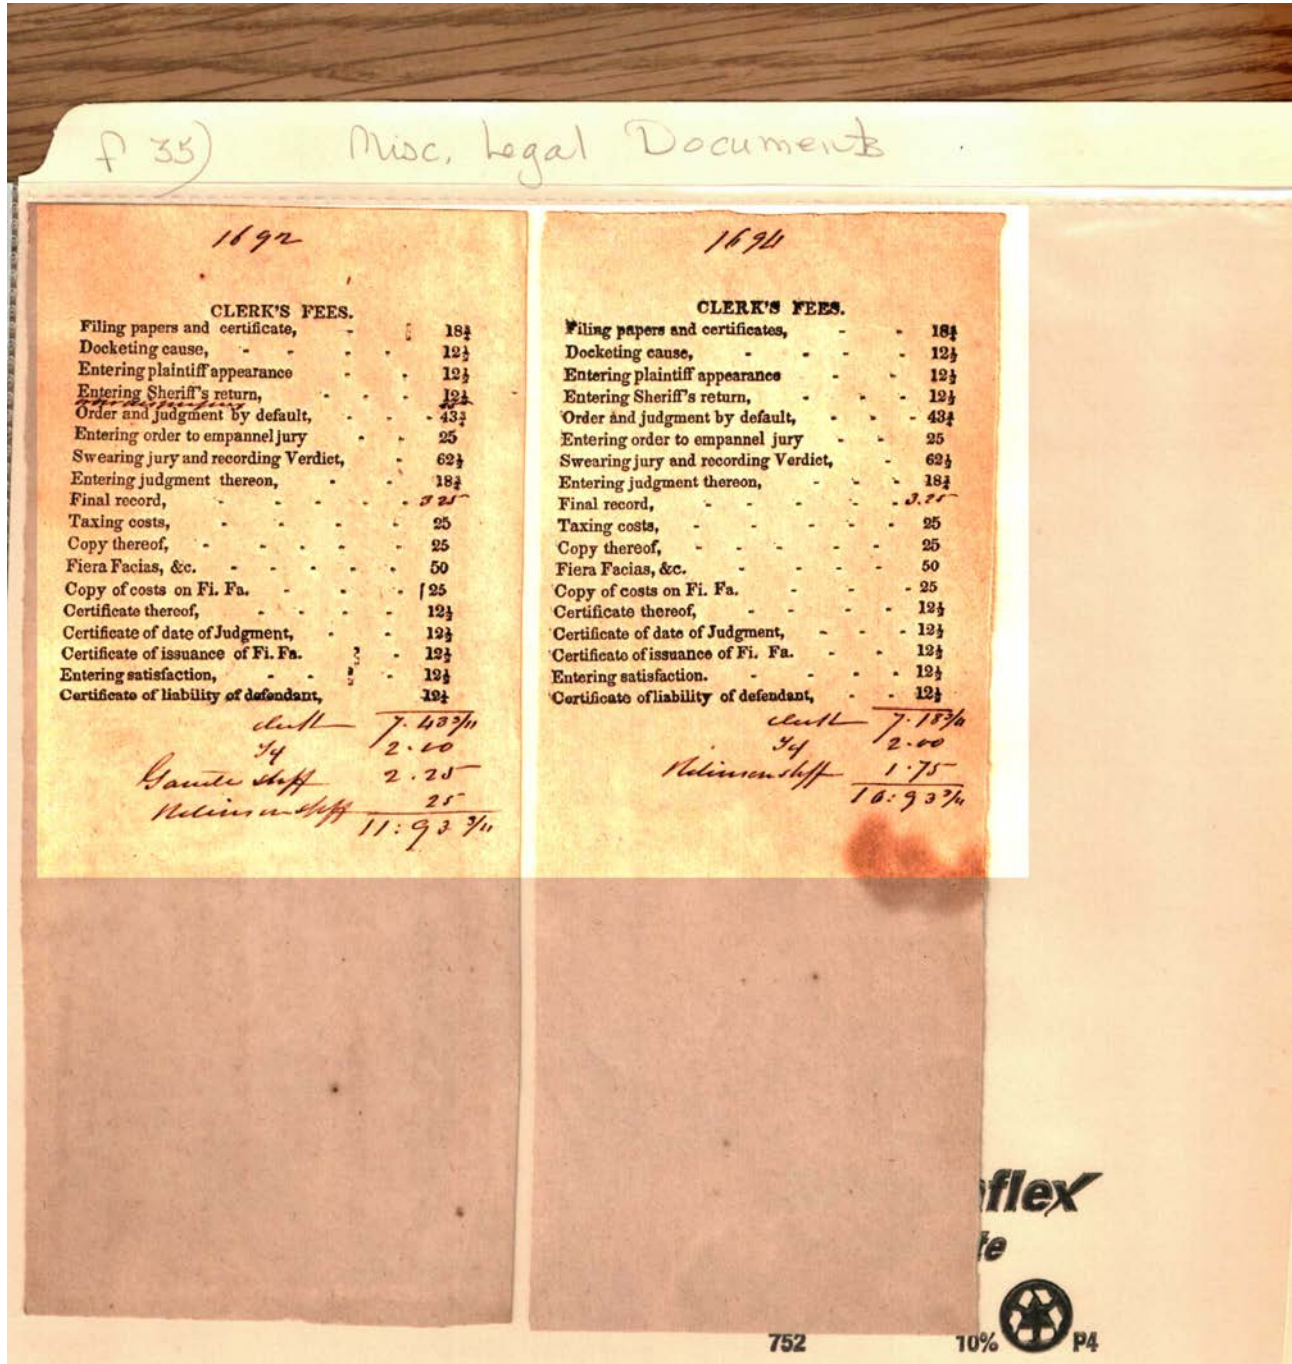 f 35) Misc. Legal Documents
1692
CLERK'S FEES.
Filing papers and certificate, - 18¾
Docketing cause, - - - - 12½
Entering plaintiff appearance - - 12½
Entering Sheriff's return, - - - 12½
Order and judgment by default, - - - 43¾
Entering order to empannel jury - - 25
Swearing jury and recording Verdict, - 62½
Entering judgment thereon, - - 18¾
Final record, - - - - - 3 25
Taxing costs, - - - - 25
Copy thereof, - - - - - - 25
Fiera Facias, &c. - - - - - 50
Copy of costs on Fi. Fa. - - - 25
Certificate thereof, - - - - 12½
Certificate of date of Judgment, - - 12½
Certificate of issuance of Fi. Fa. - 12½
Entering satisfaction, - - 12½
Certificate of liability of defendant, 12½
7. 43 3/4
2.00
shff 2.25
shff 25
11: 93 3/4
1694
CLERK'S FEES.
Filing papers and certificates, - - 18¾
Docketing cause, - - - - 12½
Entering plaintiff appearance - - 12½
Entering Sheriff's return, - - - 12½
Order and judgment by default, - - - 43¾
Entering order to empannel jury - - 25
Swearing jury and recording Verdict, - 62½
Entering judgment thereon, - - - 18¾
Final record, - - - - - 3.25
Taxing costs, - - - - - 25
Copy thereof, - - - - - 25
Fiera Facias, &c. - - - - 50
Copy of costs on Fi. Fa. - - - 25
Certificate thereof, - - - 12½
Certificate of date of Judgment, - - - 12½
Certificate of issuance of Fi. Fa. - - 12½
Entering satisfaction. - - - 12½
Certificate of liability of defendant, - - 12½
7. 18 3/4
2.00
shff 1.75
10: 93 3/4
flex
te
752 10% P4